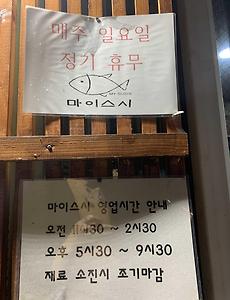 매주 일요일
정기 휴무
MY SUSHI
마이스시
마이스시 영업시간 안내
오전 11시30 ~ 2시30
오후 5시30 ~ 9시30
재료 소진시 조기마감